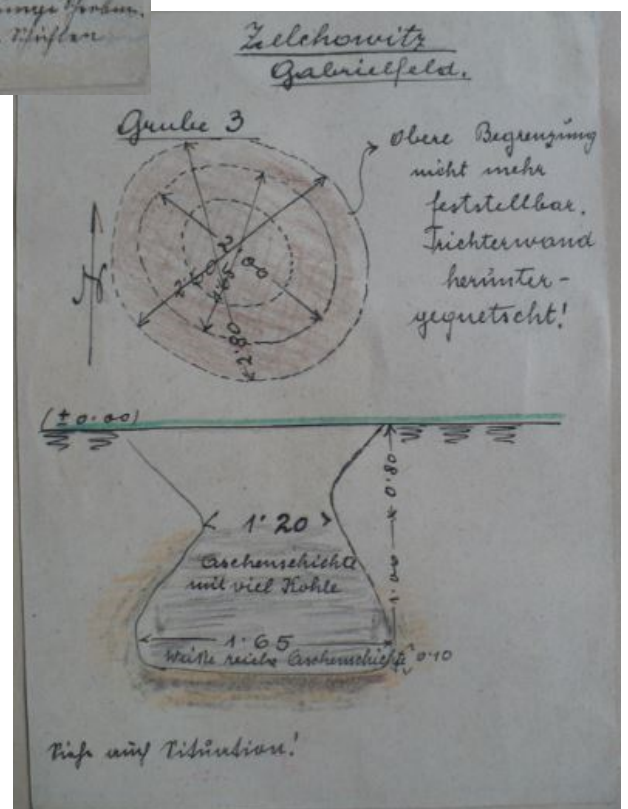 Schichten
Zelchowitz
Gabrielfeld.
Grube 3
obere Begrenzung
nicht mehr
feststellbar.
Trichterwand
herunter-
gequetscht!
N
1·65
2·80
(± 0·00)
0·80
1·20
1·00
Aschenschicht
mit viel Kohle
1·65
Weiße reiche Aschenschicht
0·10
Siehe auch Situation!